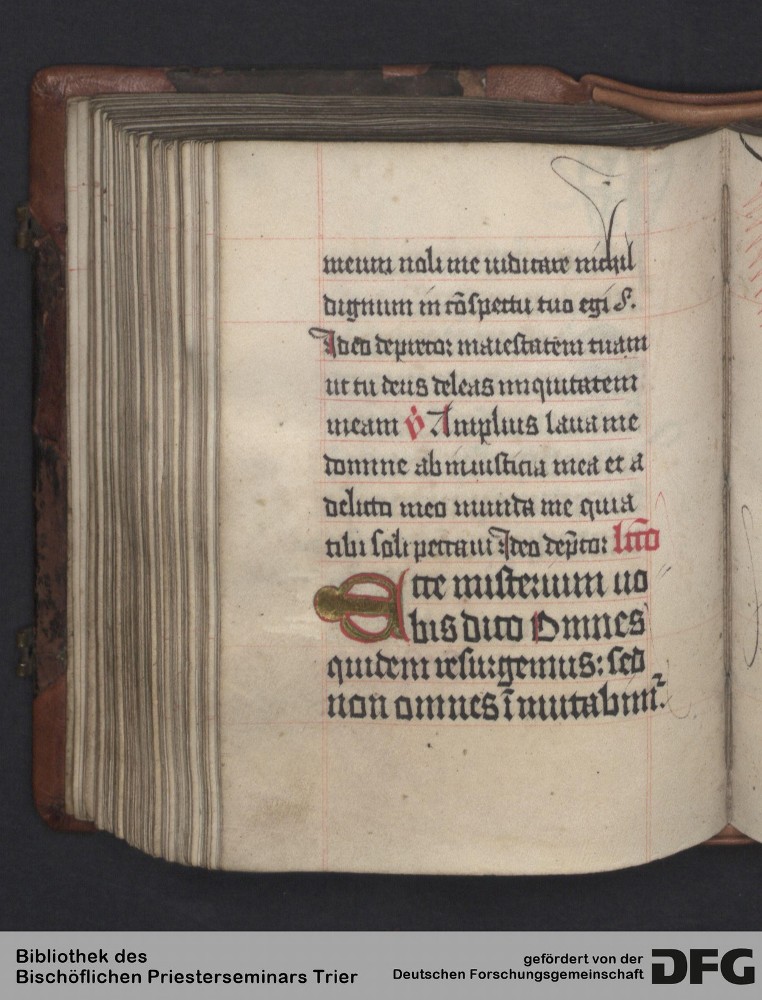 meum noli me iudicare nichil
dignum in cōspectu tuo egi S.
Ideo deprecor maiestatem tuam
ut tu deus deleas iniquitatem
meam v̄ Amplius laua me
domine ab iniusticia mea et a
delicto meo munda me quia
tibi soli peccaui Ideo dep̄cor lc̄io
Ecce misterium uo
bis dico Omnes
quidem resurgemus: sed
non omnes īmutabim̄.
Bibliothek des
Bischöflichen Priesterseminars Trier
gefördert von der
Deutschen Forschungsgemeinschaft
DFG